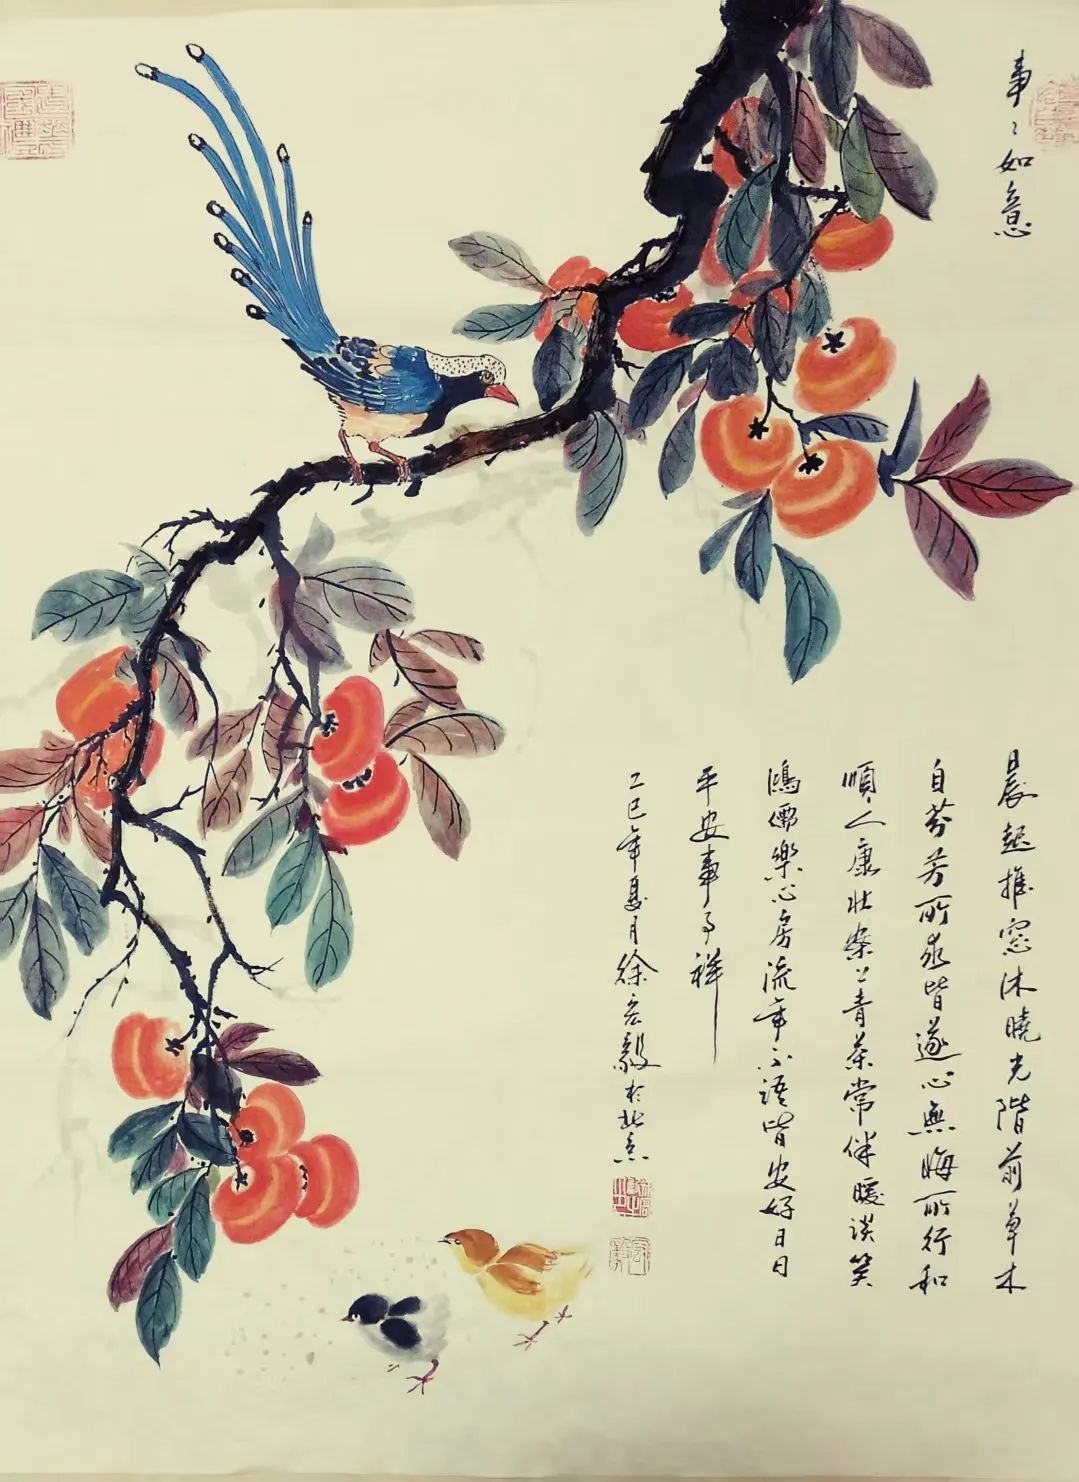 事〻如意
晨起推窓沐曉光階前草木
自芬芳所求皆遂心無悔所行和
順人康壯案上青茶常伴暖談笑
鴻儒樂心房流年不語皆安好日日
平安事事祥
乙巳年夏月徐宏毅於北京